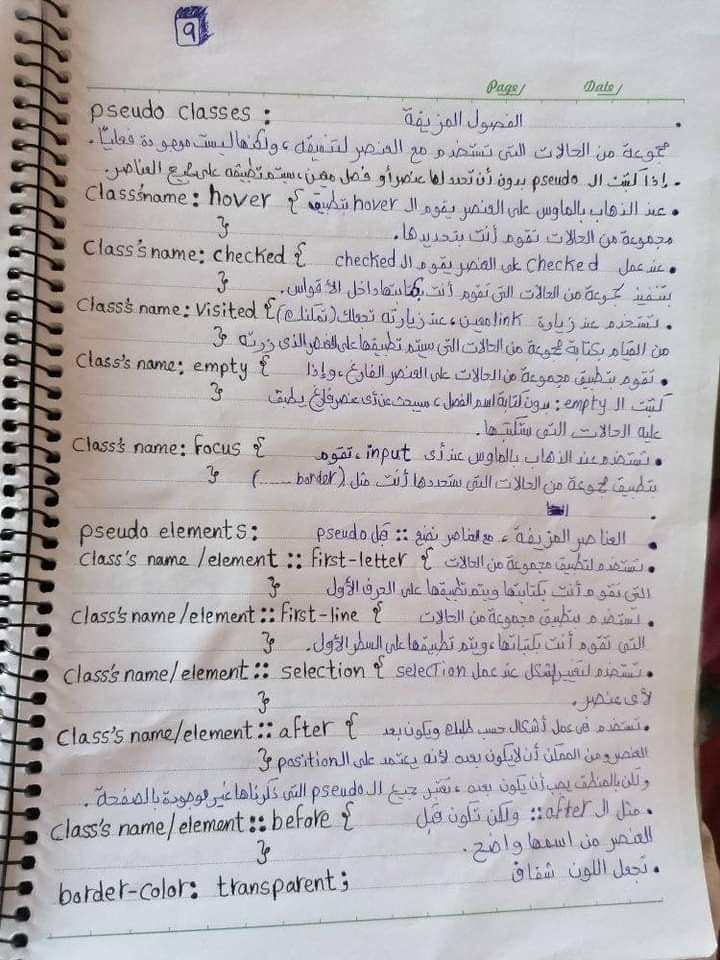 9
Page/ Date/
pseudo classes : الفصول المزيفة .
مجموعة من الحالات التي تستخدم مع العنصر لتنفيذه ، ولكنها ليست موجودة فعلياً .
. إذا كتبت الـ pseudo بدون أن تحدد لها عنصر أو فصل معين ، سيتم تطبيقه على جميع العناصر
Class's name : hover { . عند الذهاب بالماوس على العنصر يقوم الـ hover بتطبيق
} مجموعة من الحالات تقوم أنت بتحديدها .
Class's name : checked { . عند عمل checked على العنصر يقوم الـ checked
} بتنفيذ مجموعة من الحالات التي تقوم أنت بكتابتها داخل الأقواس .
Class's name : Visited { . تستخدم عند زيارة link معين ، عند زيارته تجعلك
} من القيام بكتابة مجموعة من الحالات التي سيتم تطبيقها على العنصر الذي زرته
Class's name : empty { . تقوم بتطبيق مجموعة من الحالات على العنصر الفارغ ، وإذا
} كتبت الـ empty : بدون كتابة اسم الفصل ، سيبحث عن أي عنصر فارغ يطبق
عليه الحالات التي ستكتبها .
Class's name : focus { . تستخدم عند الذهاب بالماوس عند أي input ، تقوم
} بتطبيق مجموعة من الحالات التي ستحددها أنت مثل ( border ...... )
pseudo elements : . العناصر المزيفة ، مع العناصر نضع :: قبل pseudo
Class's name /element :: first-letter { . تستخدم لتطبيق مجموعة من الحالات
} التي تقوم أنت بكتابتها ويتم تطبيقها على الحرف الأول
Class's name/element :: first-line { . تستخدم بتطبيق مجموعة من الحالات
} التي تقوم أنت بكتابتها ، ويتم تطبيقها على السطر الأول .
Class's name/element :: selection { . تستخدم لتغيير الشكل عند عمل selection
} لأي عنصر .
Class's name/element :: after { . تستخدم في عمل أشكال حسب طلبك ويكون بعد
} العنصر ومن الممكن أن لا يكون بعده لأنه يعتمد على الـ position
ولكن بالمنطق يجب أن يكون بعده ، تعتبر جميع الـ pseudo التي ذكرناها غير موجودة بالصفحة .
Class's name/element :: before { . مثل الـ after :: ولكن تكون قبل
} العنصر من اسمها واضح .
border-color : transparent ; . تجعل اللون شفاف